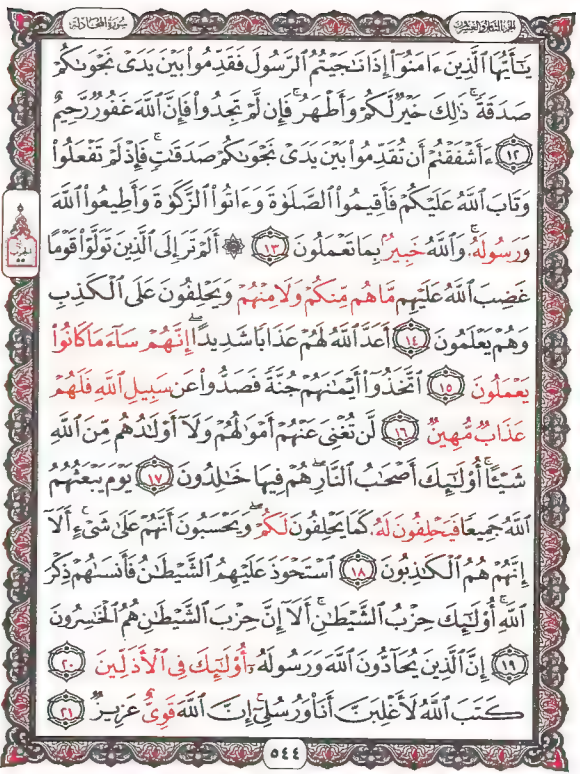 الجزء الثامن والعشرون
سورة المجادلة
يَـٰٓأَيُّهَا ٱلَّذِينَ ءَامَنُوٓا۟ إِذَا نَـٰجَيْتُمُ ٱلرَّسُولَ فَقَدِّمُوا۟ بَيْنَ يَدَىْ نَجْوَىٰكُمْ
صَدَقَةً ۚ ذَٰلِكَ خَيْرٌ لَّكُمْ وَأَطْهَرُ ۚ فَإِن لَّمْ تَجِدُوا۟ فَإِنَّ ٱللَّهَ غَفُورٌ رَّحِيمٌ
١٢ ءَأَشْفَقْتُمْ أَن تُقَدِّمُوا۟ بَيْنَ يَدَىْ نَجْوَىٰكُمْ صَدَقَـٰتٍ ۚ فَإِذْ لَمْ تَفْعَلُوا۟
وَتَابَ ٱللَّهُ عَلَيْكُمْ فَأَقِيمُوا۟ ٱلصَّلَوٰةَ وَءَاتُوا۟ ٱلزَّكَوٰةَ وَأَطِيعُوا۟ ٱللَّهَ
وَرَسُولَهُۥ ۚ وَٱللَّهُ خَبِيرٌۢ بِمَا تَعْمَلُونَ ١٣ ۞ أَلَمْ تَرَ إِلَى ٱلَّذِينَ تَوَلَّوْا۟ قَوْمًا
غَضِبَ ٱللَّهُ عَلَيْهِم مَّا هُم مِّنكُمْ وَلَا مِنْهُمْ وَيَحْلِفُونَ عَلَى ٱلْكَذِبِ
وَهُمْ يَعْلَمُونَ ١٤ أَعَدَّ ٱللَّهُ لَهُمْ عَذَابًا شَدِيدًا ۖ إِنَّهُمْ سَآءَ مَا كَانُوا۟
يَعْمَلُونَ ١٥ ٱتَّخَذُوٓا۟ أَيْمَـٰنَهُمْ جُنَّةً فَصَدُّوا۟ عَن سَبِيلِ ٱللَّهِ فَلَهُمْ
عَذَابٌ مُّهِينٌ ١٦ لَّن تُغْنِىَ عَنْهُمْ أَمْوَٰلُهُمْ وَلَآ أَوْلَـٰدُهُم مِّنَ ٱللَّهِ
شَيْـًٔا ۚ أُو۟لَـٰٓئِكَ أَصْحَـٰبُ ٱلنَّارِ ۖ هُمْ فِيهَا خَـٰلِدُونَ ١٧ يَوْمَ يَبْعَثُهُمُ
ٱللَّهُ جَمِيعًا فَيَحْلِفُونَ لَهُۥ كَمَا يَحْلِفُونَ لَكُمْ ۖ وَيَحْسَبُونَ أَنَّهُمْ عَلَىٰ شَىْءٍ ۚ أَلَآ
إِنَّهُمْ هُمُ ٱلْكَـٰذِبُونَ ١٨ ٱسْتَحْوَذَ عَلَيْهِمُ ٱلشَّيْطَـٰنُ فَأَنسَىٰهُمْ ذِكْرَ
ٱللَّهِ ۚ أُو۟لَـٰٓئِكَ حِزْبُ ٱلشَّيْطَـٰنِ ۚ أَلَآ إِنَّ حِزْبَ ٱلشَّيْطَـٰنِ هُمُ ٱلْخَـٰسِرُونَ
١٩ إِنَّ ٱلَّذِينَ يُحَآدُّونَ ٱللَّهَ وَرَسُولَهُۥٓ أُو۟لَـٰٓئِكَ فِى ٱلْأَذَلِّينَ ٢٠
كَتَبَ ٱللَّهُ لَأَغْلِبَنَّ أَنَا۠ وَرُسُلِىٓ ۚ إِنَّ ٱللَّهَ قَوِىٌّ عَزِيزٌ ٢١
٥٤٤